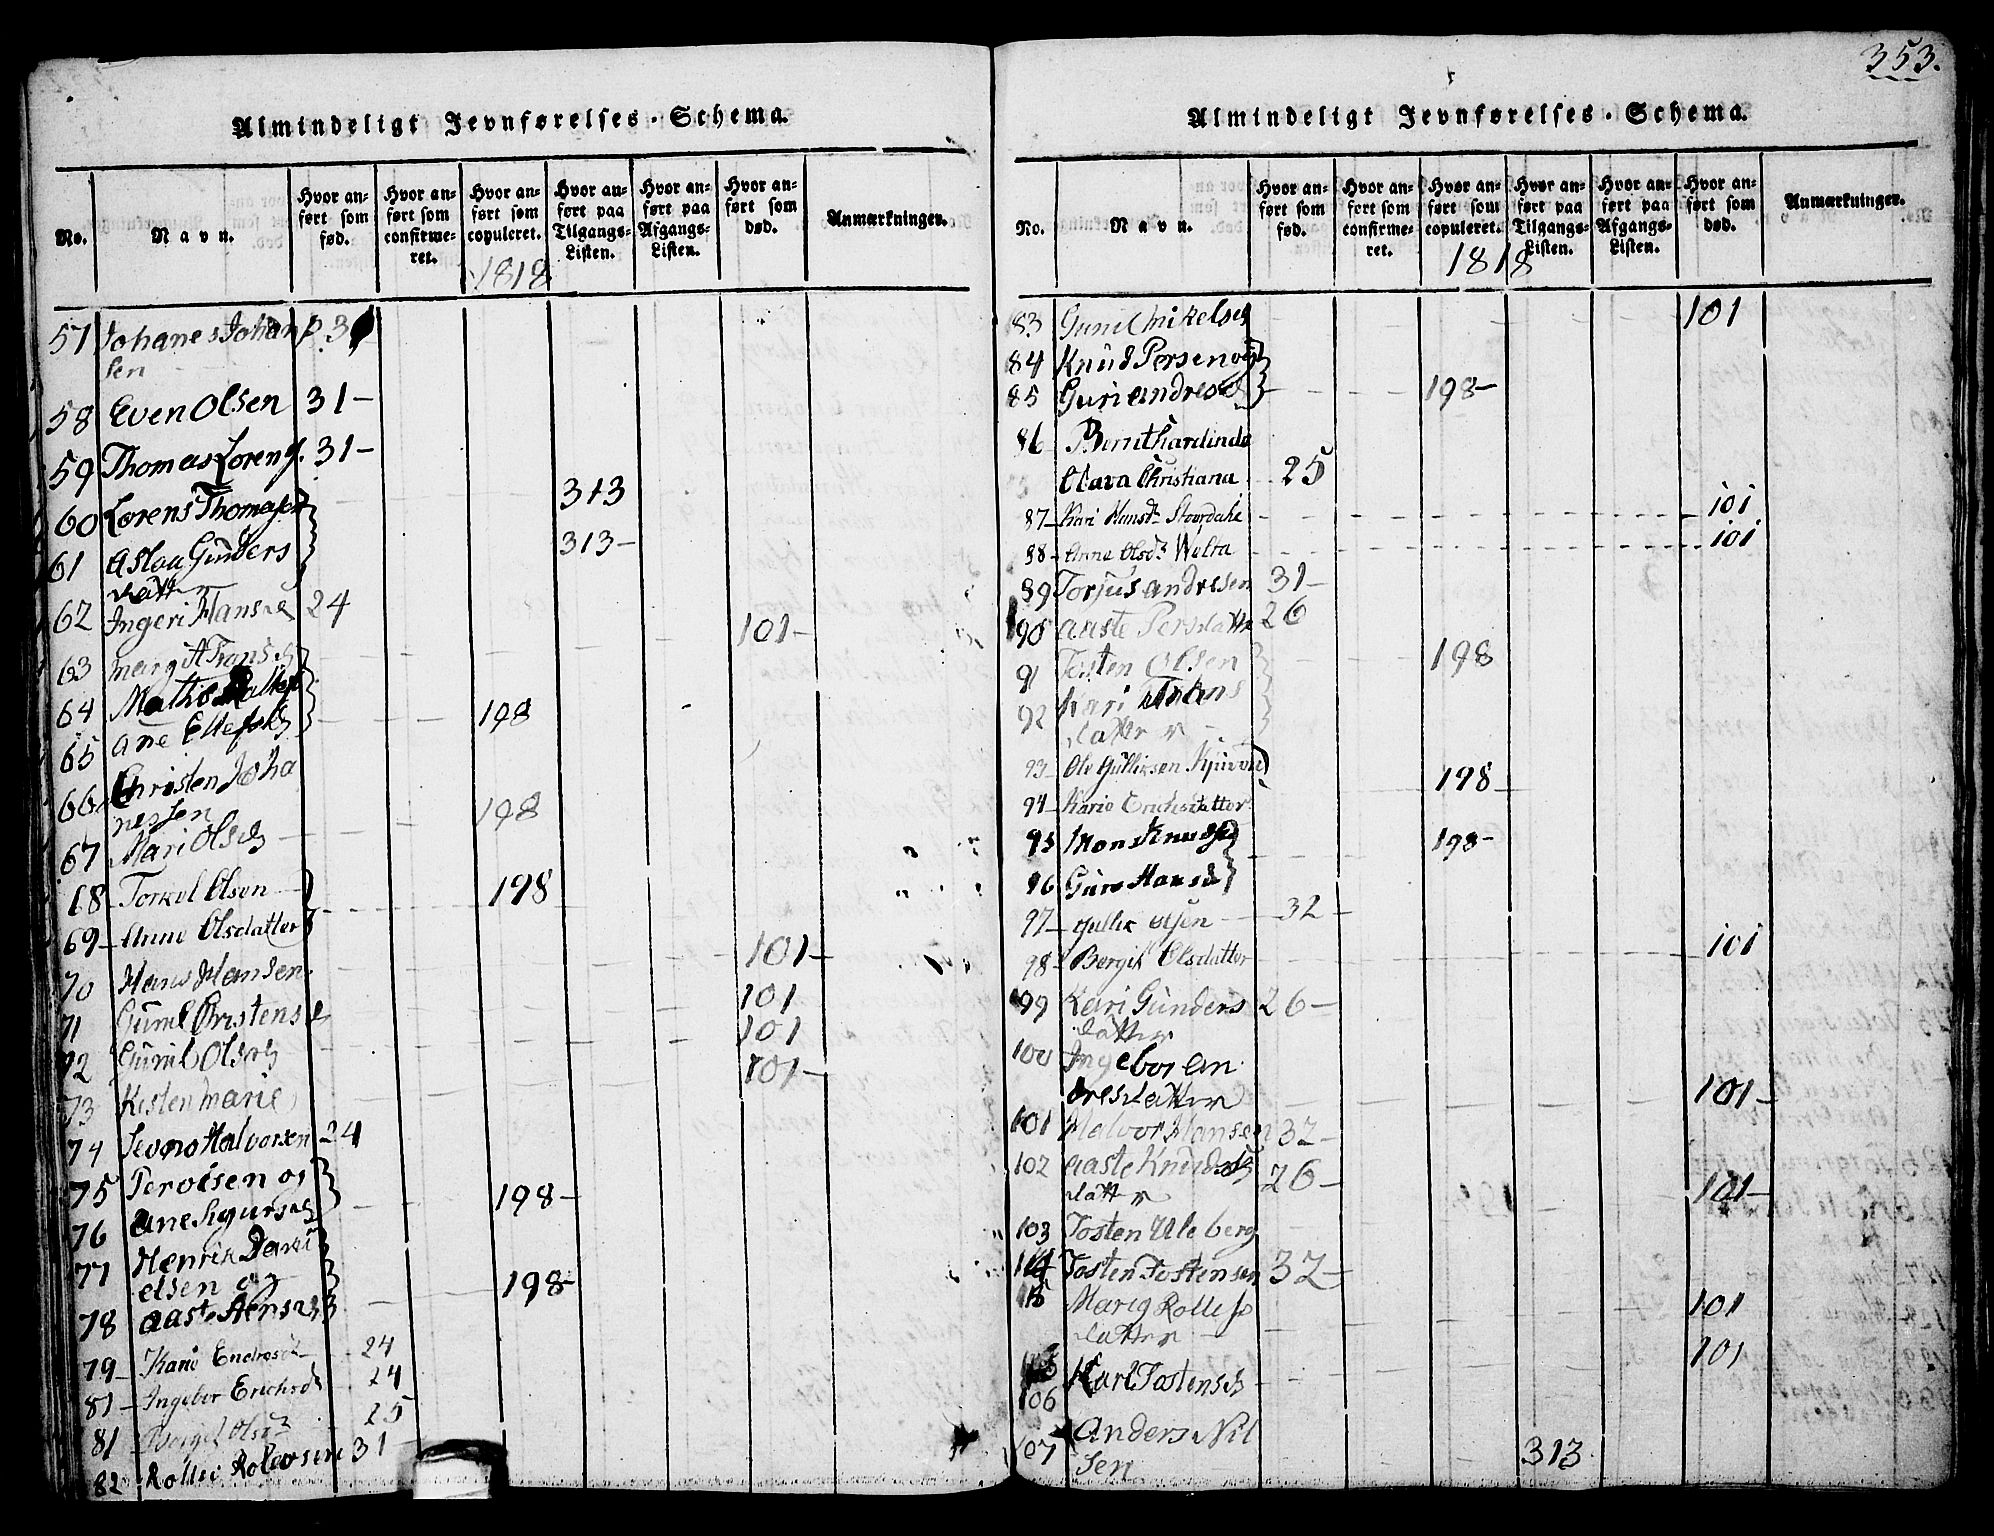 353.
Almindeligt Jevnførelses-Schema.
No. Navn. Hvor anført som fød. Hvor anført som confirmeret. Hvor anført som copuleret. Hvor anført paa Tilgangs-Listen. Hvor anført paa Afgangs-Listen. Hvor anført som død. Anmærkninger.
1818
57 Johanes Johan p. 31
sen
58 Even Olsen 31-
59 Thomas Loren 31-
60 Lorens Thomas 313
61 Aslaa Gunders 313-
datter
62 Ingeri Hansd 24
63 margit Hansd 101-
64 Mathis
65 ane Ellefsd 198
66 Christen Joha
nessen
67 Mari Olsd 198
68 Torkel Olsen
69- Anne Olsdatter 198
70 Hans Hansen 101-
71 Gunil Christens 101
72 Gunil Olsd 101
73 Kisten marie 101-
74 Halvorsen 24
75 Per Olsen og
76 ane Sigursd 198-
77 Henrik Dani
elsen og
78 aaste Jensd 198-
79- Kari Endresd 24
81- Ingebor Erichsd 24
81 Bergit Olsd 25
82 Rollef Rolevsen 31-
Almindeligt Jevnførelses-Schema.
No. Navn. Hvor anført som fød. Hvor anført som confirmeret. Hvor anført som copuleret. Hvor anført paa Tilgangs-Listen. Hvor anført paa Afgangs-Listen. Hvor anført som død. Anmærkninger.
1818
83 Gunil mikelsd 101
84 Knud Persen og
85 Guri andresd 198-
86 Bernthardinde
Clara Christiana 25
87- Kari Hansd 101
88- Anne Olsd Wolta 101
89 Torjus andresen 31-
90 aaste Persdatte 26
91 Tosten Olsen 198
92 Kari
datter
93- Ole Gulliksen
94- Karie Erichsdatter 198
95 Mons Knudsen 198-
96 Guro Hansd
97- Gullik Olsen 32
98- Bergit Olsdatter 101
99 Kari Gunders 26-
datter
100 Ingebor an
dresdatter 101-
101 Halvor Hansen 32-
102 aaste Knuds 26-
datter
103 Tosten Uleberg 101-
104 Tosten Tostensen 32-
Marig Rollefs 101
datter
106 Kari Tostensd 101
107 Anders Nil
sen 313